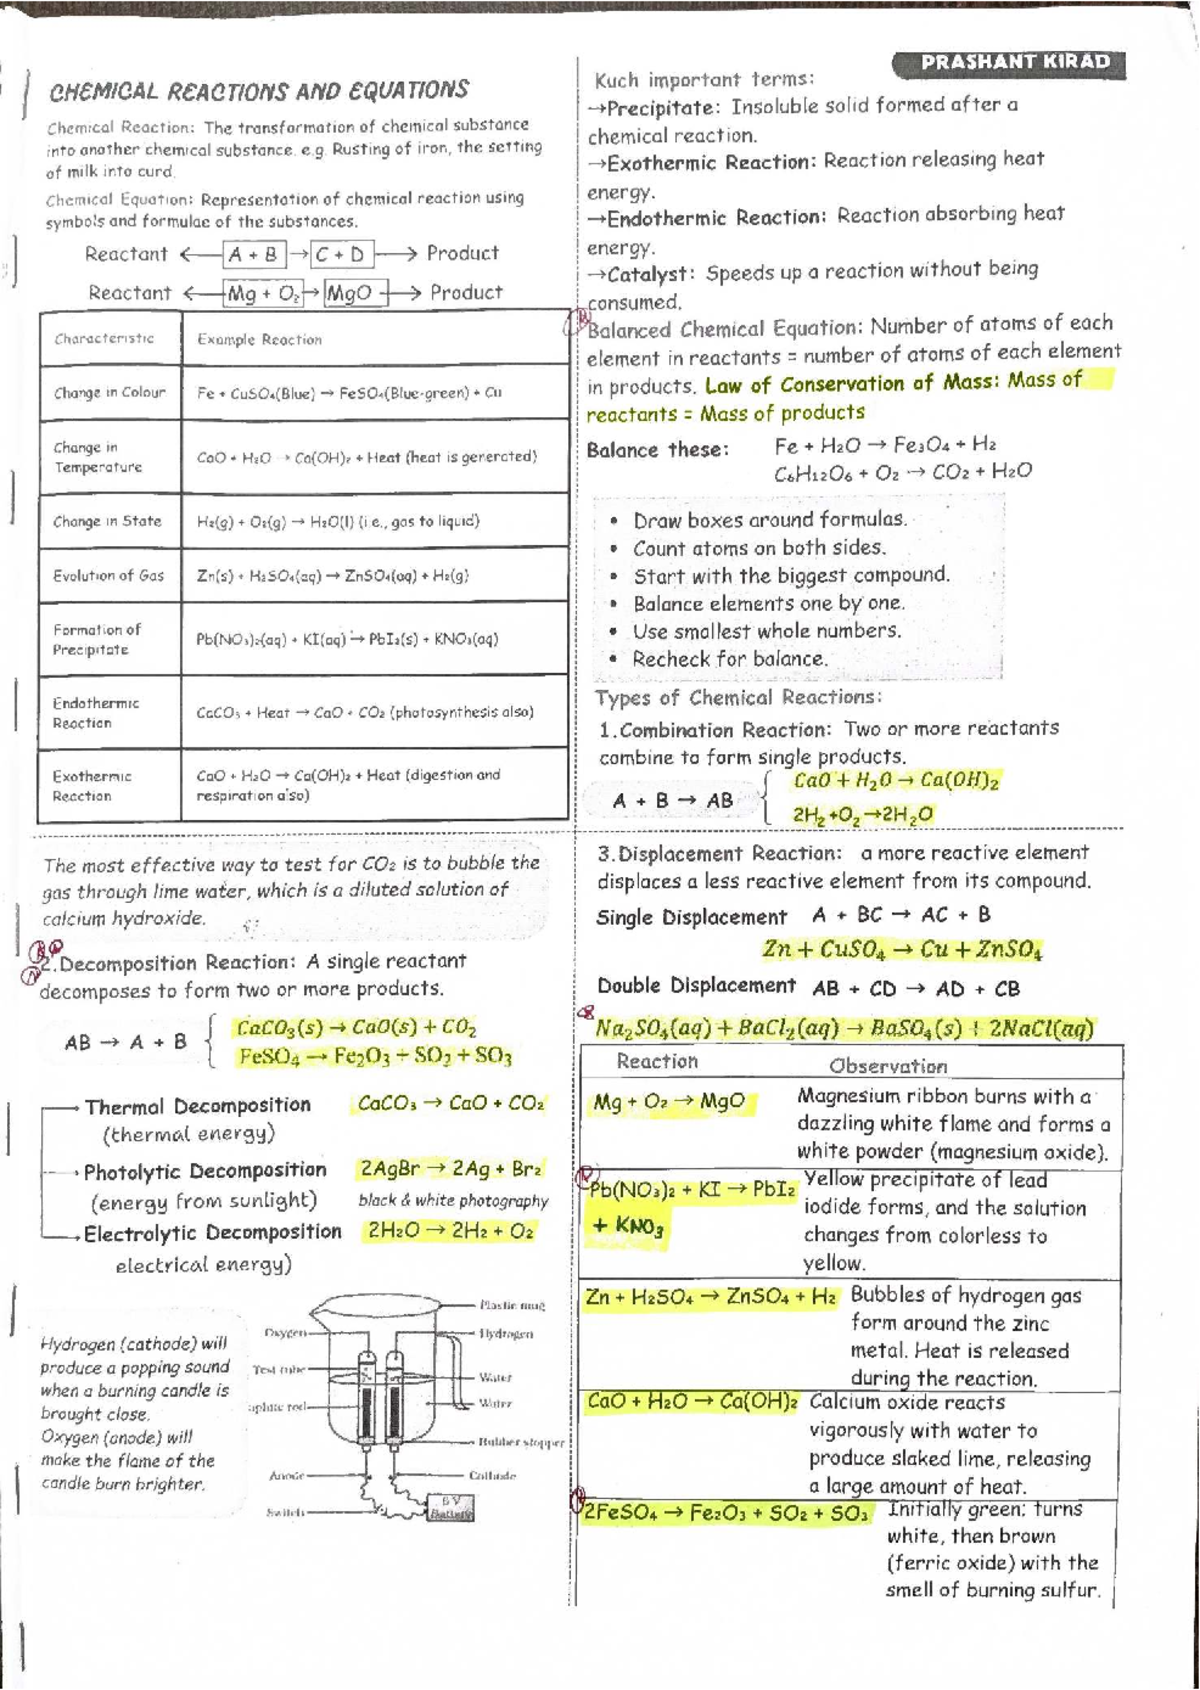 PRASHANT KIRAD
CHEMICAL REACTIONS AND EQUATIONS
Chemical Reaction: The transformation of chemical substance
into another chemical substance. e.g. Rusting of iron, the setting
of milk into curd.
Chemical Equation: Representation of chemical reaction using
symbols and formulae of the substances.
Reactant ← A + B → C + D → Product
Reactant ← Mg + O₂ → MgO → Product
Characteristic Example Reaction
Change in Colour Fe + CuSO₄(Blue) → FeSO₄(Blue-green) + Cu
Change in
Temperature CaO + H₂O → Ca(OH)₂ + Heat (heat is generated)
Change in State H₂(g) + O₂(g) → H₂O(l) (i.e., gas to liquid)
Evolution of Gas Zn(s) + H₂SO₄(aq) → ZnSO₄(aq) + H₂(g)
Formation of
Precipitate Pb(NO₃)₂(aq) + KI(aq) → PbI₂(s) + KNO₃(aq)
Endothermic
Reaction CaCO₃ + Heat → CaO + CO₂ (photosynthesis also)
Exothermic
Reaction CaO + H₂O → Ca(OH)₂ + Heat (digestion and
respiration also)
Kuch important terms:
→Precipitate: Insoluble solid formed after a
chemical reaction.
→Exothermic Reaction: Reaction releasing heat
energy.
→Endothermic Reaction: Reaction absorbing heat
energy.
→Catalyst: Speeds up a reaction without being
consumed.
Balanced Chemical Equation: Number of atoms of each
element in reactants = number of atoms of each element
in products. Law of Conservation of Mass: Mass of
reactants = Mass of products
Balance these: Fe + H₂O → Fe₃O₄ + H₂
C₆H₁₂O₆ + O₂ → CO₂ + H₂O
• Draw boxes around formulas.
• Count atoms on both sides.
• Start with the biggest compound.
• Balance elements one by one.
• Use smallest whole numbers.
• Recheck for balance.
Types of Chemical Reactions:
1.Combination Reaction: Two or more reactants
combine to form single products.
A + B → AB
CaO + H₂O → Ca(OH)₂
2H₂ +O₂→2H₂O
The most effective way to test for CO₂ is to bubble the
gas through lime water, which is a diluted solution of
calcium hydroxide.
2.Decomposition Reaction: A single reactant
decomposes to form two or more products.
AB → A + B
CaCO₃(s) → CaO(s) + CO₂
FeSO₄ → Fe₂O₃ + SO₂ + SO₃
Thermal Decomposition CaCO₃ → CaO + CO₂
(thermal energy)
Photolytic Decomposition 2AgBr → 2Ag + Br₂
(energy from sunlight) black & white photography
Electrolytic Decomposition 2H₂O → 2H₂ + O₂
electrical energy)
Hydrogen (cathode) will
produce a popping sound
when a burning candle is
brought close.
Oxygen (anode) will
make the flame of the
candle burn brighter.
Plastic mug
Oxygen
Hydrogen
Test tube
Water
Water
aphite rod
Rubber stopper
Anode
Cathode
Switch
6 V
Battery
3.Displacement Reaction: a more reactive element
displaces a less reactive element from its compound.
Single Displacement A + BC → AC + B
Zn + CuSO₄ → Cu + ZnSO₄
Double Displacement AB + CD → AD + CB
Na₂SO₄(aq) + BaCl₂(aq) → BaSO₄(s) + 2NaCl(aq)
Reaction Observation
Mg + O₂ → MgO Magnesium ribbon burns with a
dazzling white flame and forms a
white powder (magnesium oxide).
Pb(NO₃)₂ + KI → PbI₂ Yellow precipitate of lead
+ KNO₃ iodide forms, and the solution
changes from colorless to
yellow.
Zn + H₂SO₄ → ZnSO₄ + H₂ Bubbles of hydrogen gas
form around the zinc
metal. Heat is released
during the reaction.
CaO + H₂O → Ca(OH)₂ Calcium oxide reacts
vigorously with water to
produce slaked lime, releasing
a large amount of heat.
2FeSO₄ → Fe₂O₃ + SO₂ + SO₃ Initially green; turns
white, then brown
(ferric oxide) with the
smell of burning sulfur.